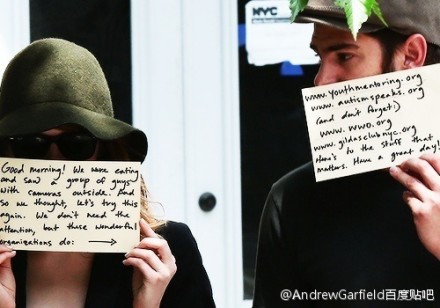 NYC
Good morning! We were eating
and saw a group of guys
with cameras outside. And
so we thought, let's try this
again. We don't need the
attention, but these wonderful
organizations do: →
www.youthmentoring.org
www.autismspeaks.org
(and don't forget)
www.wwo.org
www.gildasclubnyc.org
Here's to the stuff that
matters. Have a great day!
@AndrewGarfield百度贴吧